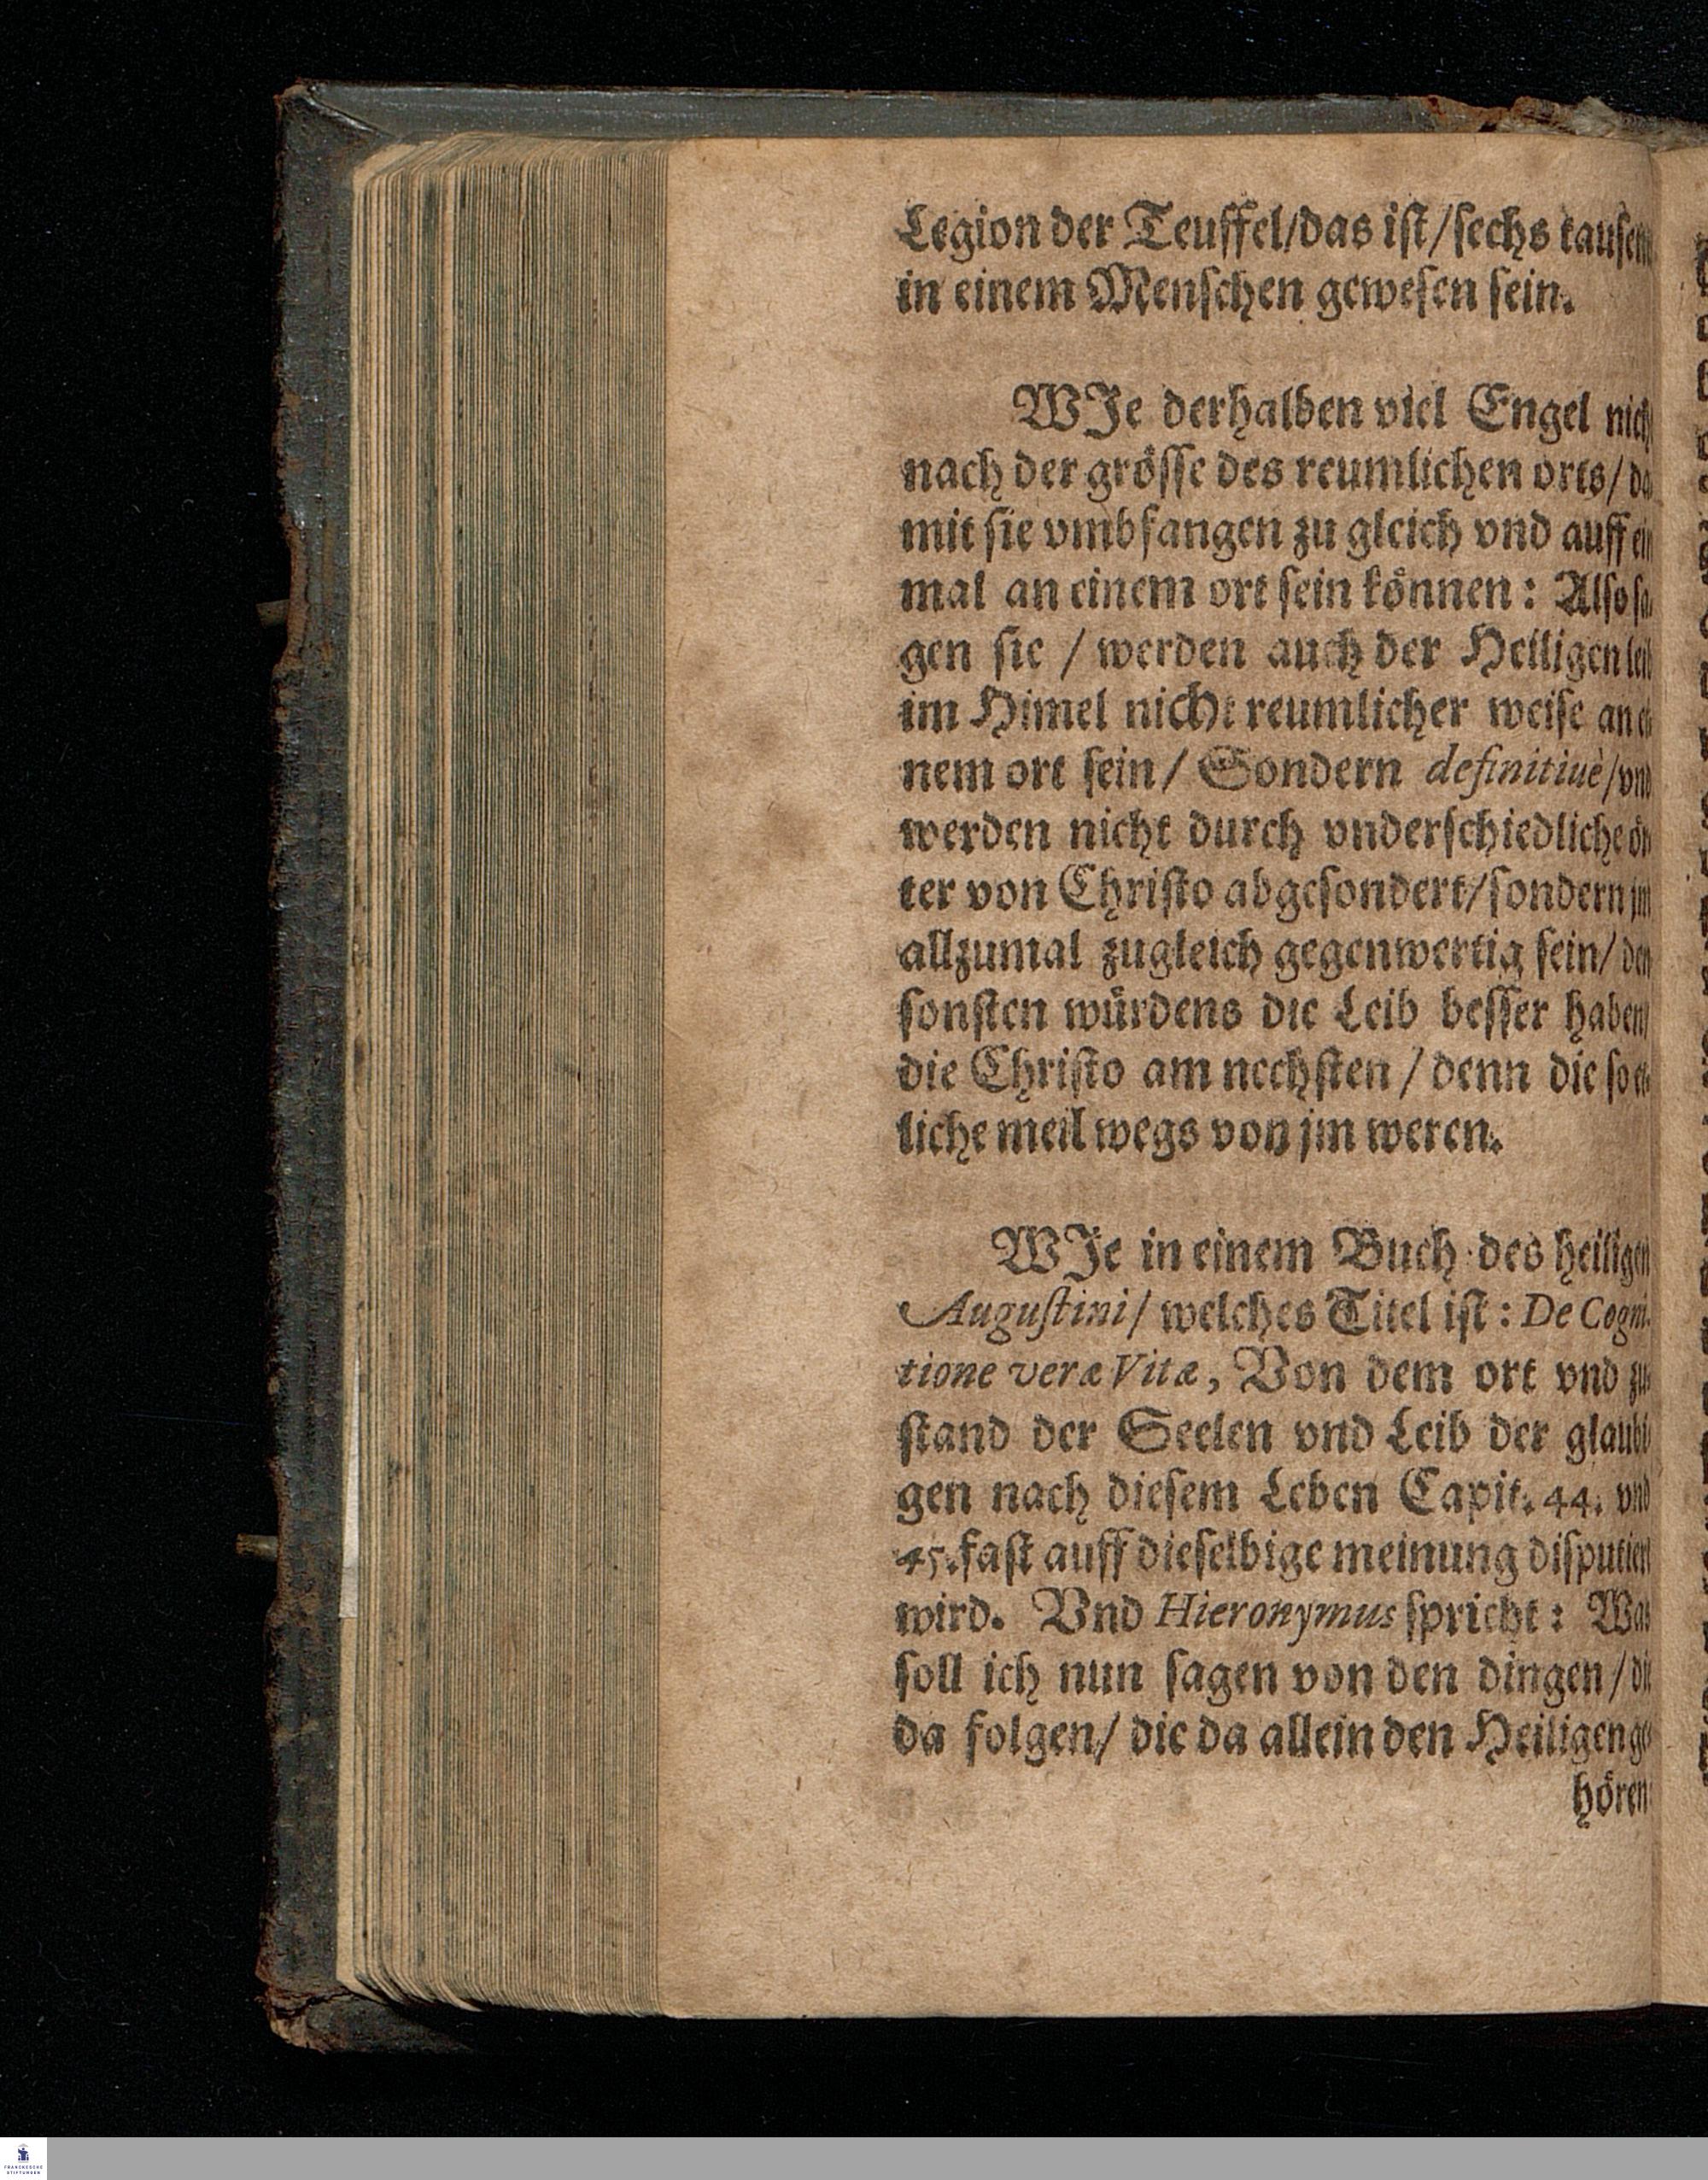 Legion der Teuffel/das ist/sechs tausen
in einem Menschen gewesen sein.
WJe derhalben viel Engel nich
nach der grösse des reumlichen orts/ da
mit sie vmbfangen zu gleich vnd auff ein
mal an einem ort sein können: Also sa
gen sie / werden auch der Heiligen leib
im Himel nicht reumlicher weise an ei
nem ort sein/ Sondern definitiuè/vnd
werden nicht durch vnderschiedliche ör
ter von Christo abgesondert/sondern jm
allzumal zugleich gegenwertig sein/ den
sonsten würdens die Leib besser haben/
die Christo am nechsten / denn die so et
liche meil wegs von jm weren.
WJe in einem Buch des heiligen
Augustini/ welches Titel ist: De Cogni-
tione veræ Vitæ, Von dem ort vnd zu
stand der Seelen vnd Leib der glaubi
gen nach diesem Leben Capit. 44. vnd
45. fast auff dieselbige meinung disputiert
wird. Vnd Hieronymus spricht: Was
soll ich nun sagen von den dingen/ die
da folgen/ die da allein den Heiligen ge
hören
FRANCKESCHE
STIFTUNGEN